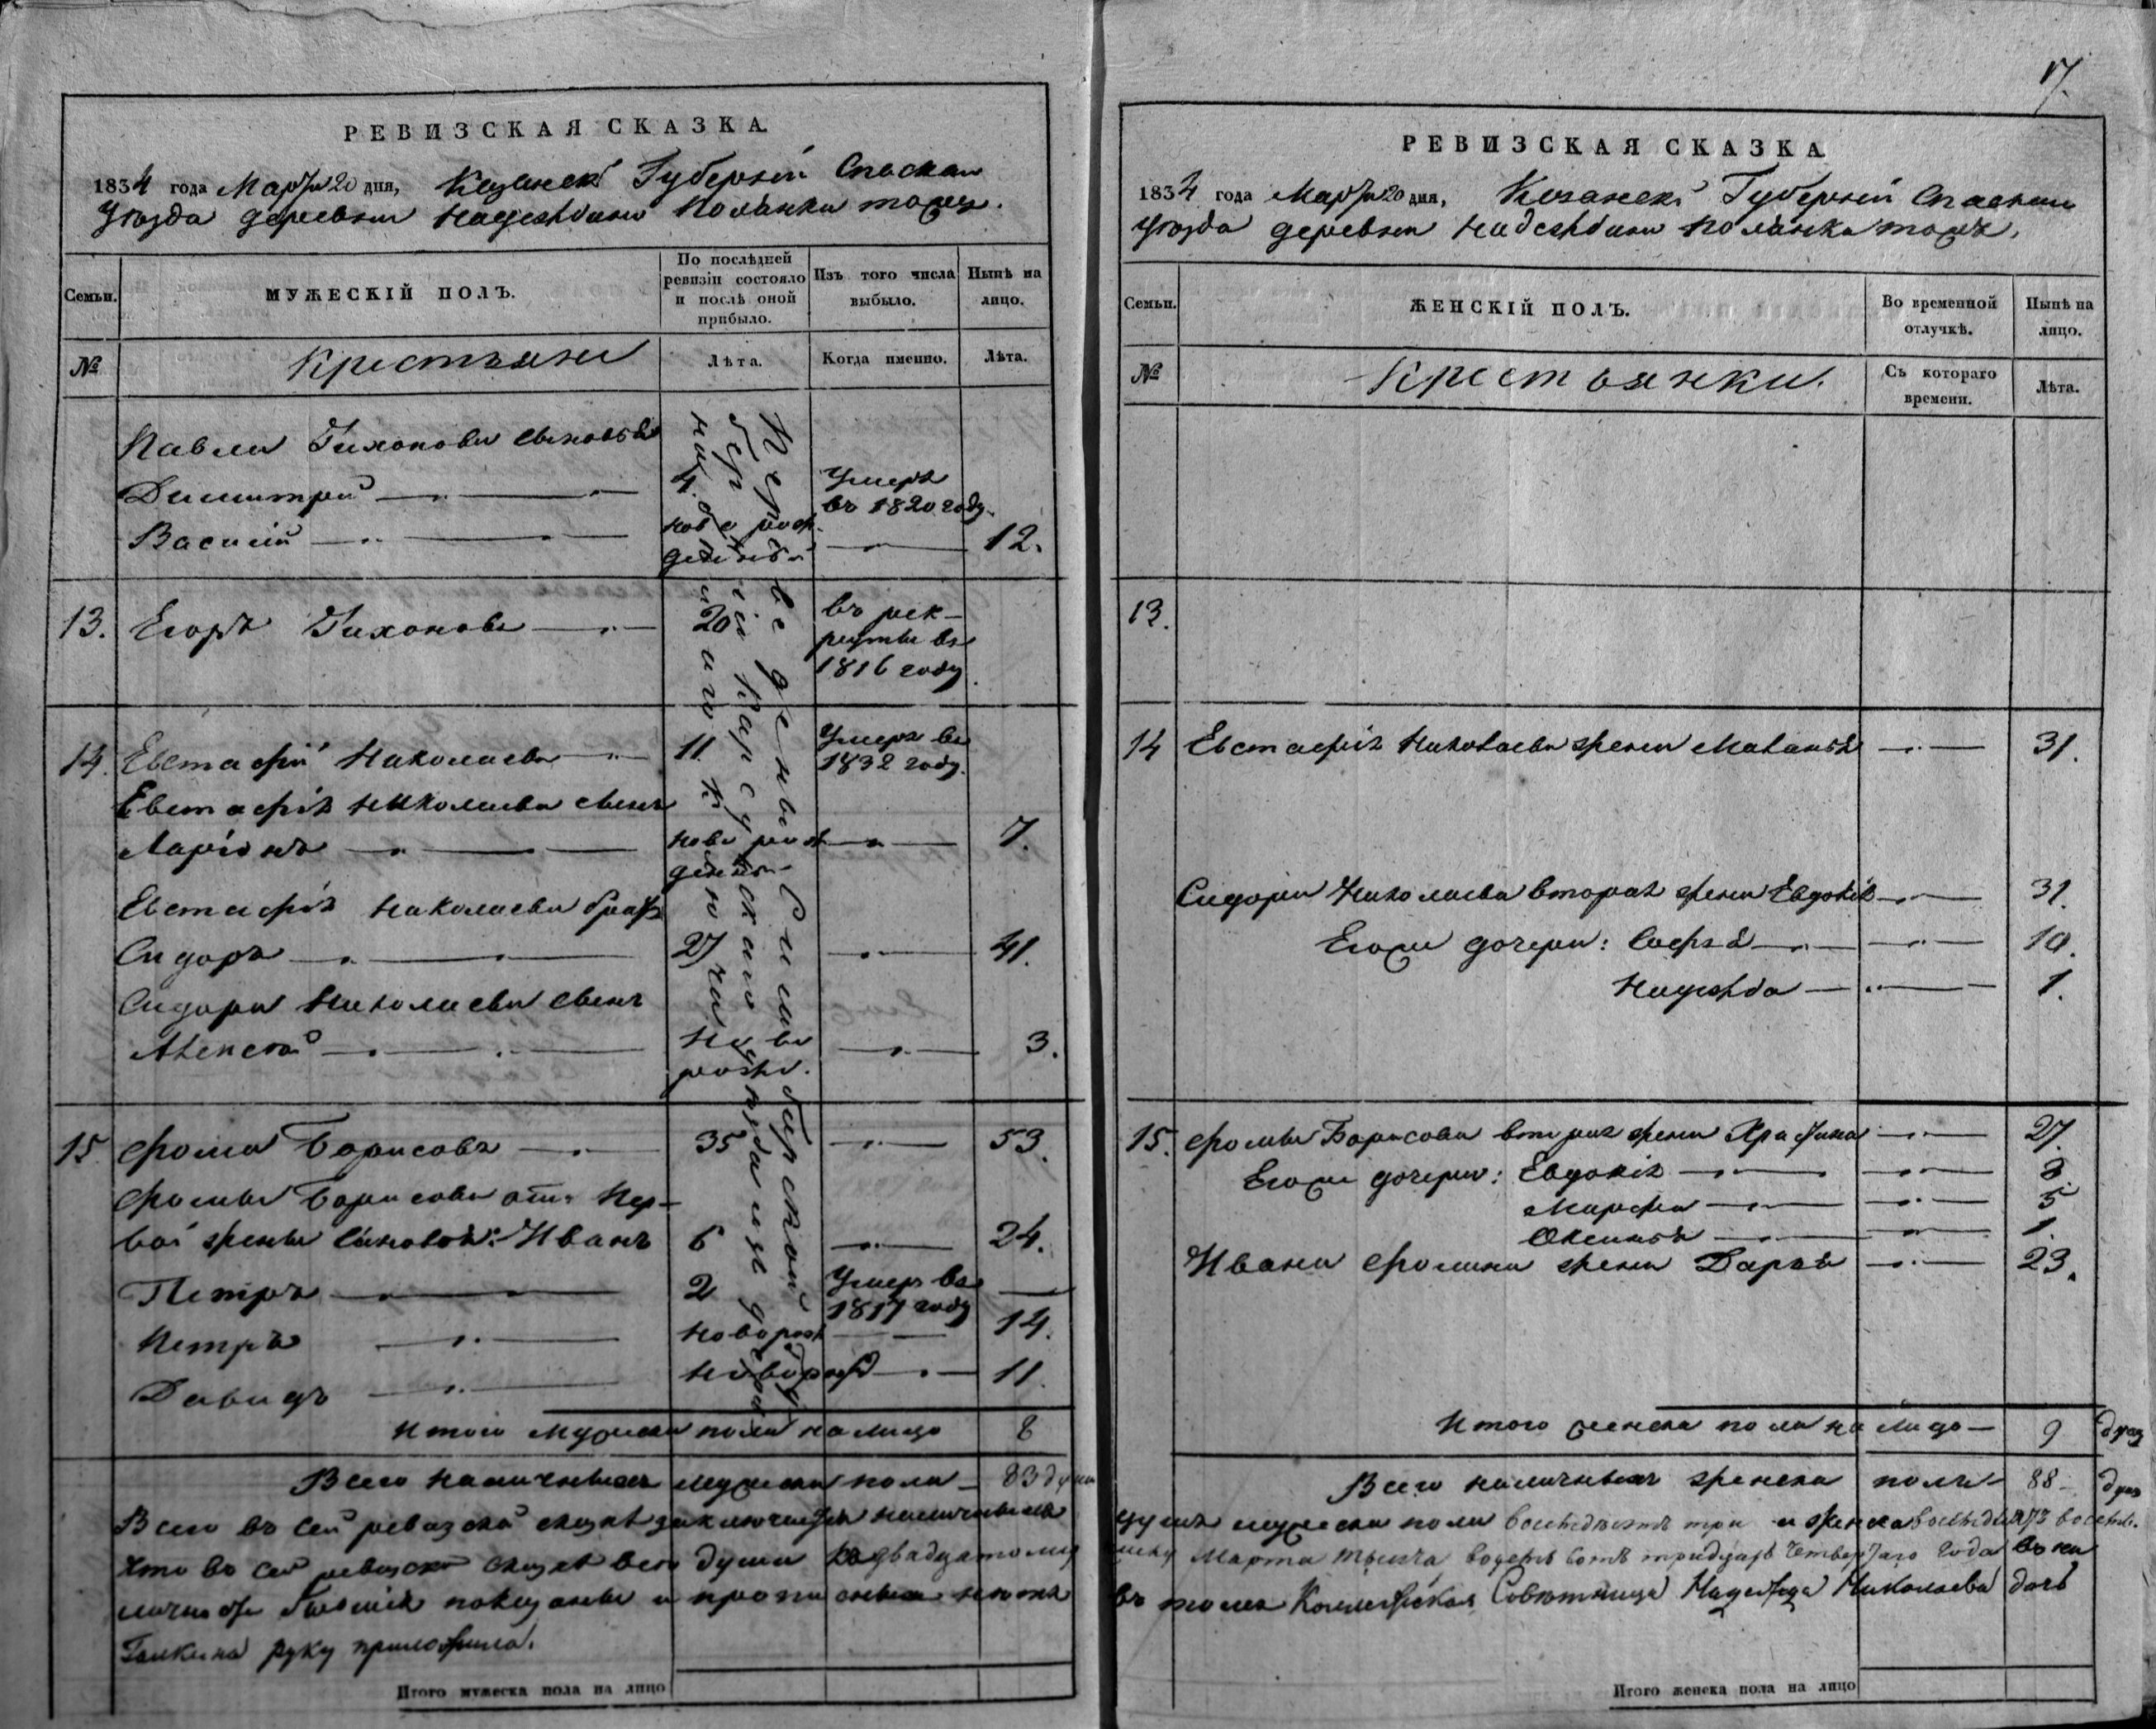 РЕВИЗСКАЯ СКАЗКА
1834 года Марта 20 дня, Казанской Губернии Спаскаго
Уѣзда деревни Надеждино Полянка тожъ.
Семьи. МУЖЕСКІЙ ПОЛЪ. По послѣдней ревизіи состояло и послѣ оной прибыло. Изъ того числа выбыло. Нынѣ на лицо.
№ Крестьяне Лѣта. Когда именно. Лѣта.
Павла Тихонова сыновья
Димитрей 4. Умеръ въ 1820 году
Василій ново рожденный 12.
13. Егоръ Тихоновъ 20 въ рекруты въ 1816 году
14. Евстафій Николаевъ 11. Умеръ въ 1832 году.
Евстафія Николаева сынъ
Ларіонъ ново рожденъ 7.
Евстафія Николаева братъ
Сидоръ 27 41.
Сидора Николаева сынъ
Алексѣй ново рожд. 3.
15 Фома Борисовъ 35 53.
Фомы Борисова отъ пер-
вой жены сыновья: Иванъ 6 24.
Петръ 2 Умеръ въ 1817 году
Петръ новорож 14.
Давидъ новорож 11.
Переведены Симбирской
губерніи Карсунскаго
Итого мужеска пола на лицо 8
Всего наличныхъ мужеска пола 83 души
Всего въ сей ревизской сказкѣ заключается наличныхъ
что въ сей ревизской сказкѣ всѣ души
Галкина руку приложила.
Итого мужеска пола на лицо
17.
РЕВИЗСКАЯ СКАЗКА
1834 года Марта 20 дня, Казанской Губерніи Спаскаго
Уѣзда деревни Надеждино Полянка тожъ.
Семьи. ЖЕНСКІЙ ПОЛЪ. Во временной отлучкѣ. Нынѣ на лицо.
№ Крестьянки. Съ котораго времени. Лѣта.
13.
14 Евстафія Николаева жена Маланья 31.
Сидора Николаева вторая жена Евдокія 31.
Егоже дочери: Софья 10.
Надежда 1.
15. Фомы Борисова вторая жена 27.
Егоже дочери: Евдокія 8.
Марфа 5
Оксинья 1.
Ивана Фомина жена Дарья 23.
Итого женска пола на лицо 9 душ
Всего наличныхъ женска пола 88 душ
душъ мужеска пола восемдесятъ три и женска восемдесятъ восемь.
Марта тысяча восемь сотъ тридцать четвертаго года
Коллежская Совѣтница Надежда Николаева дочь
Итого женска пола на лицо